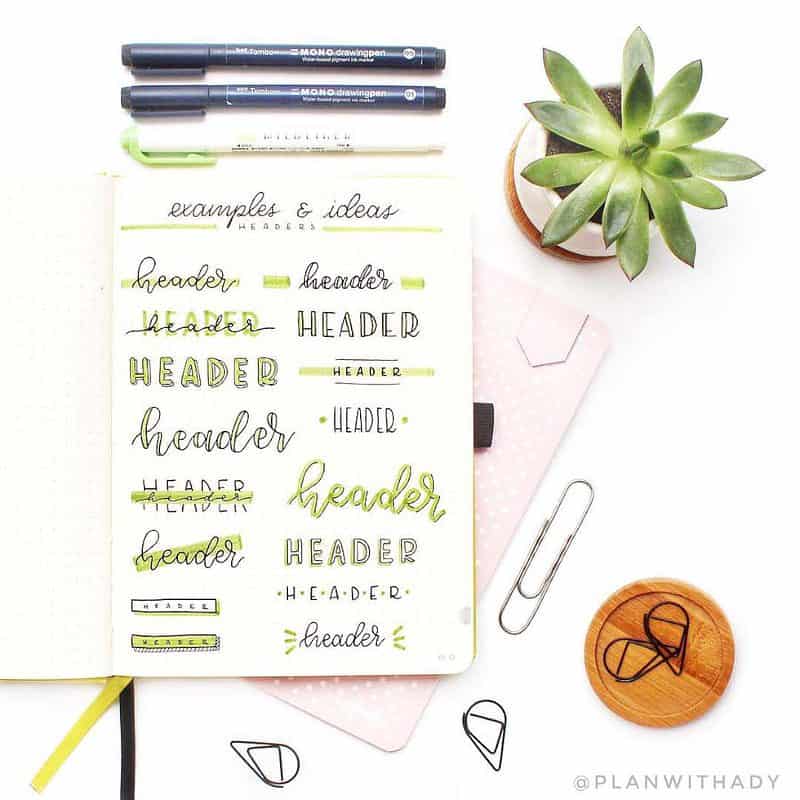 Tombow MONO drawing pen 05
Water-based pigment ink marker
Tombow MONO drawing pen
Water-based pigment ink marker
MILDLINER
examples & ideas
HEADERS
header
HEADER
header
HEADER
header
HEADER
header
header
HEADER
HEADER
header
HEADER
HEADER
HEADER
header
HEADER
·H·E·A·D·E·R·
header
@PLANWITHADY